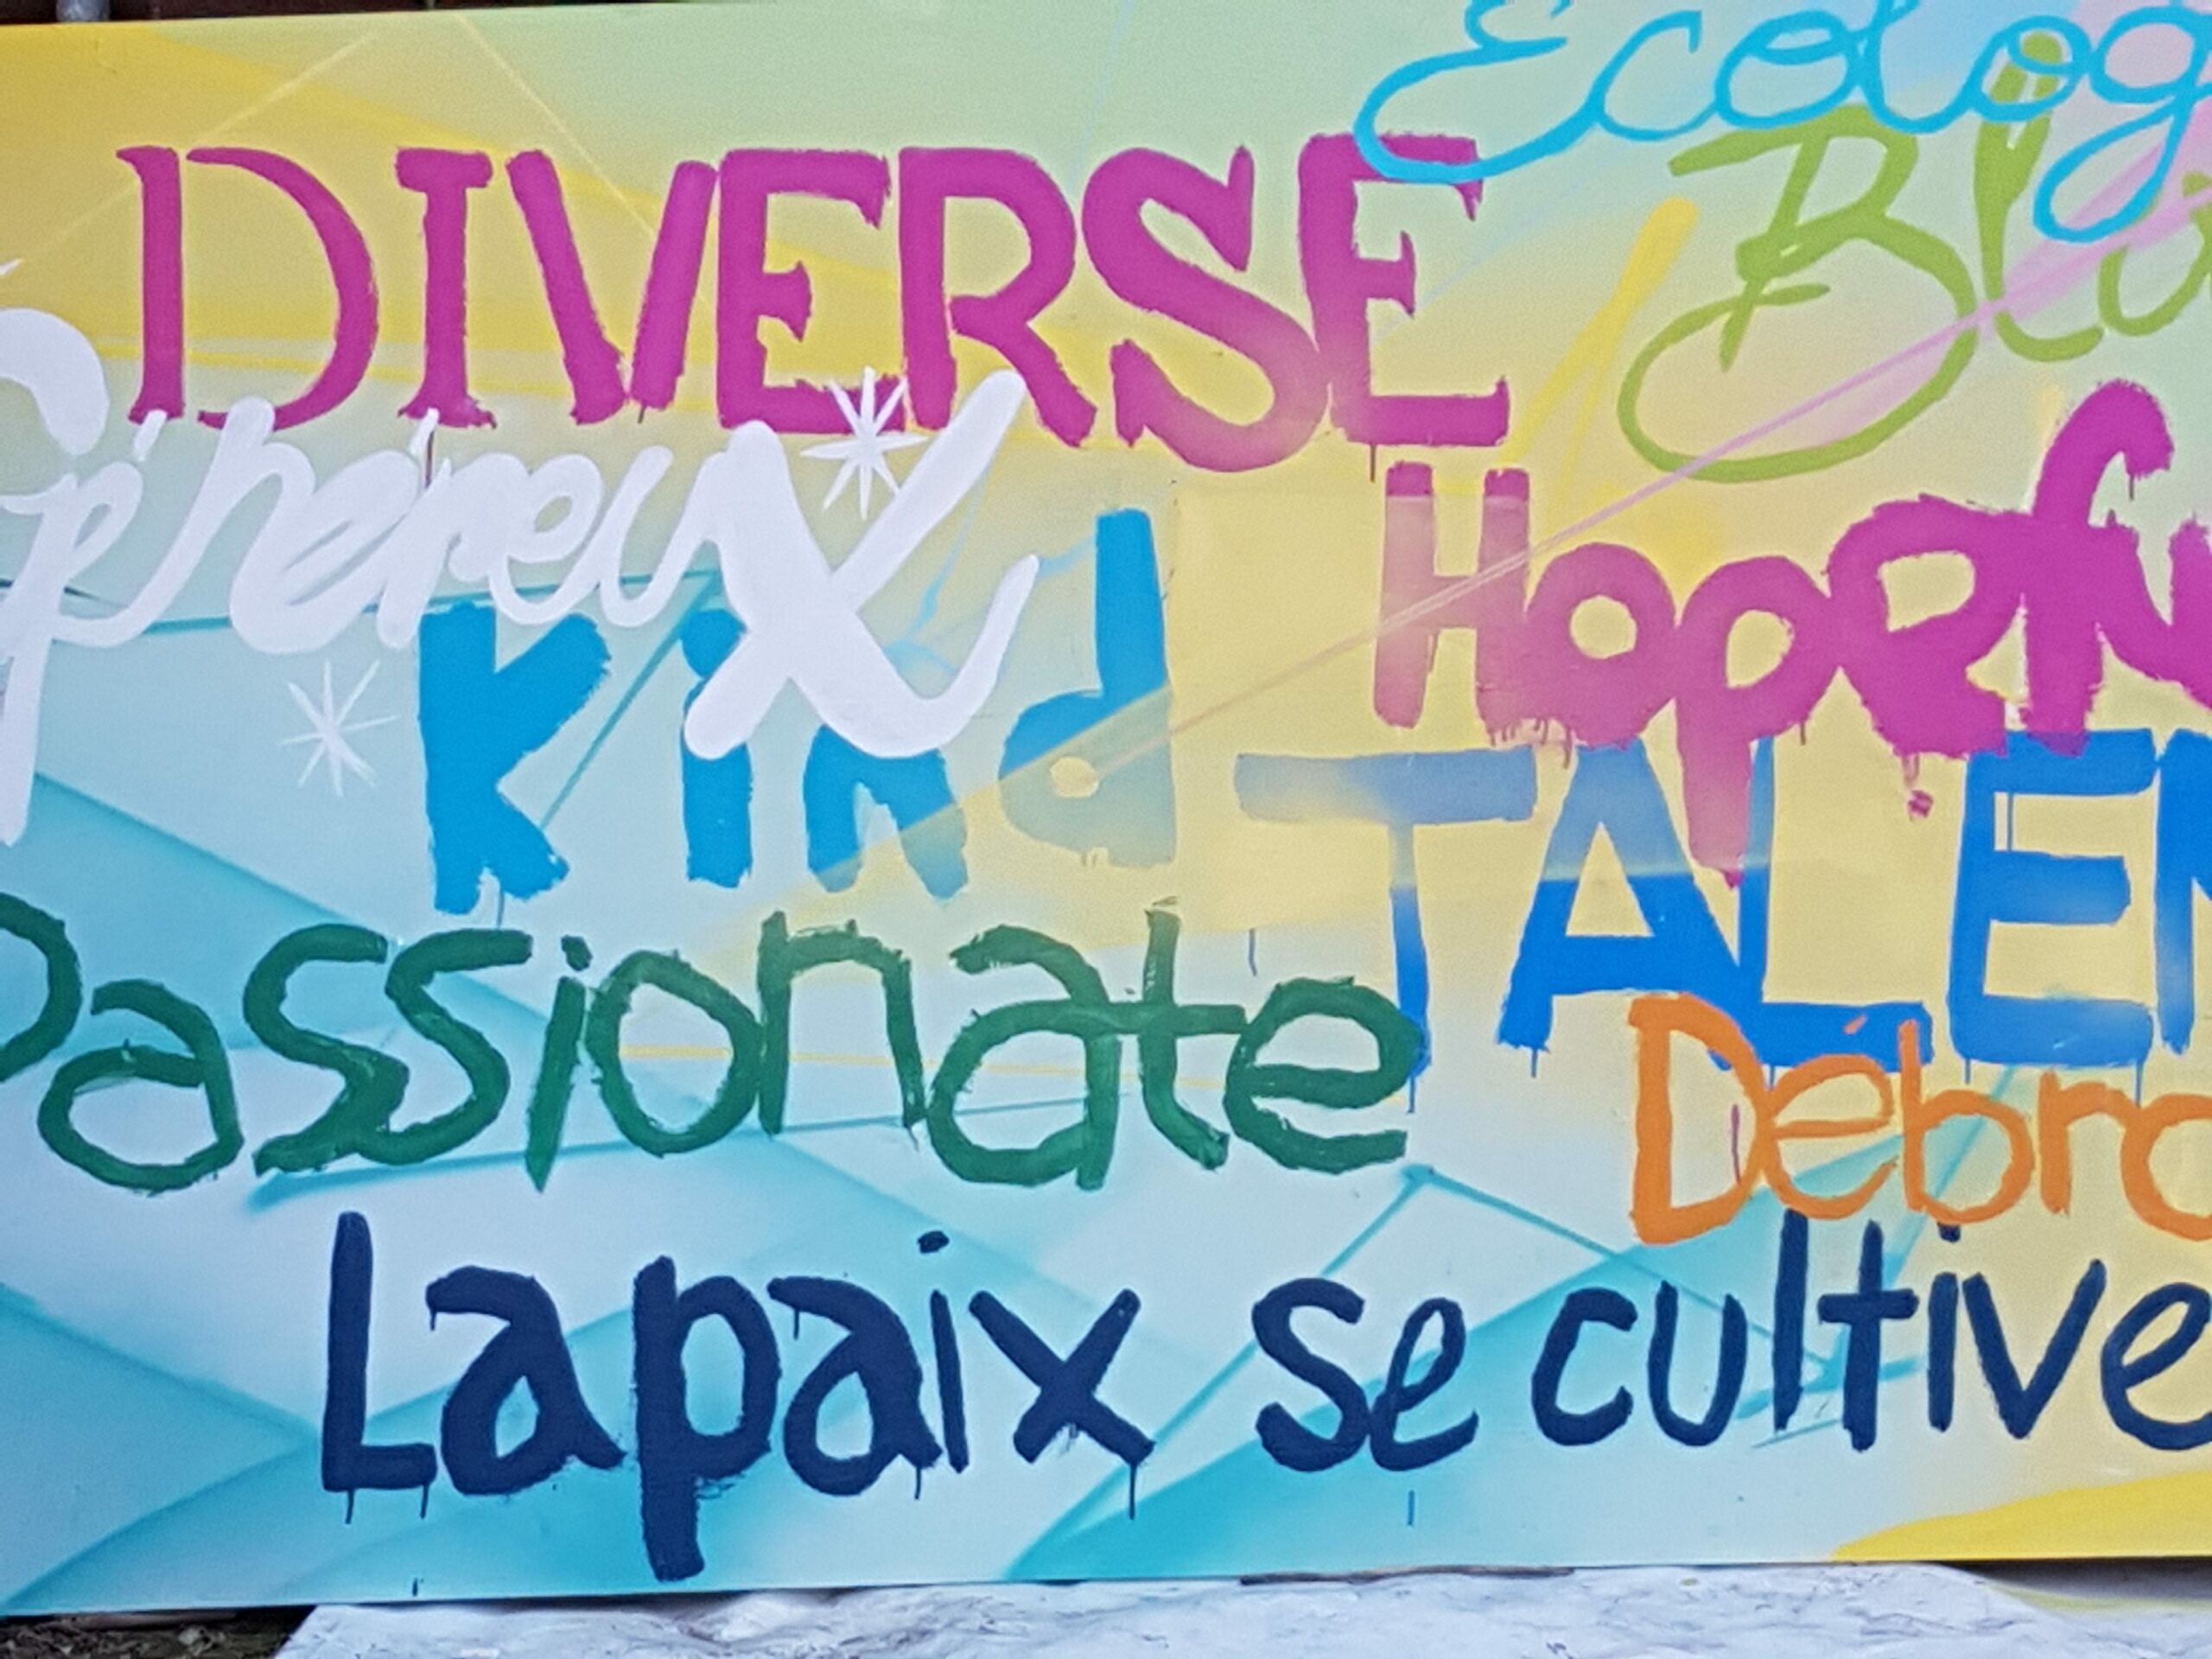 Ecolog
DIVERSE
Généreux
Hopefu
Kind
TALEN
Passionate
Débro
La paix se cultive